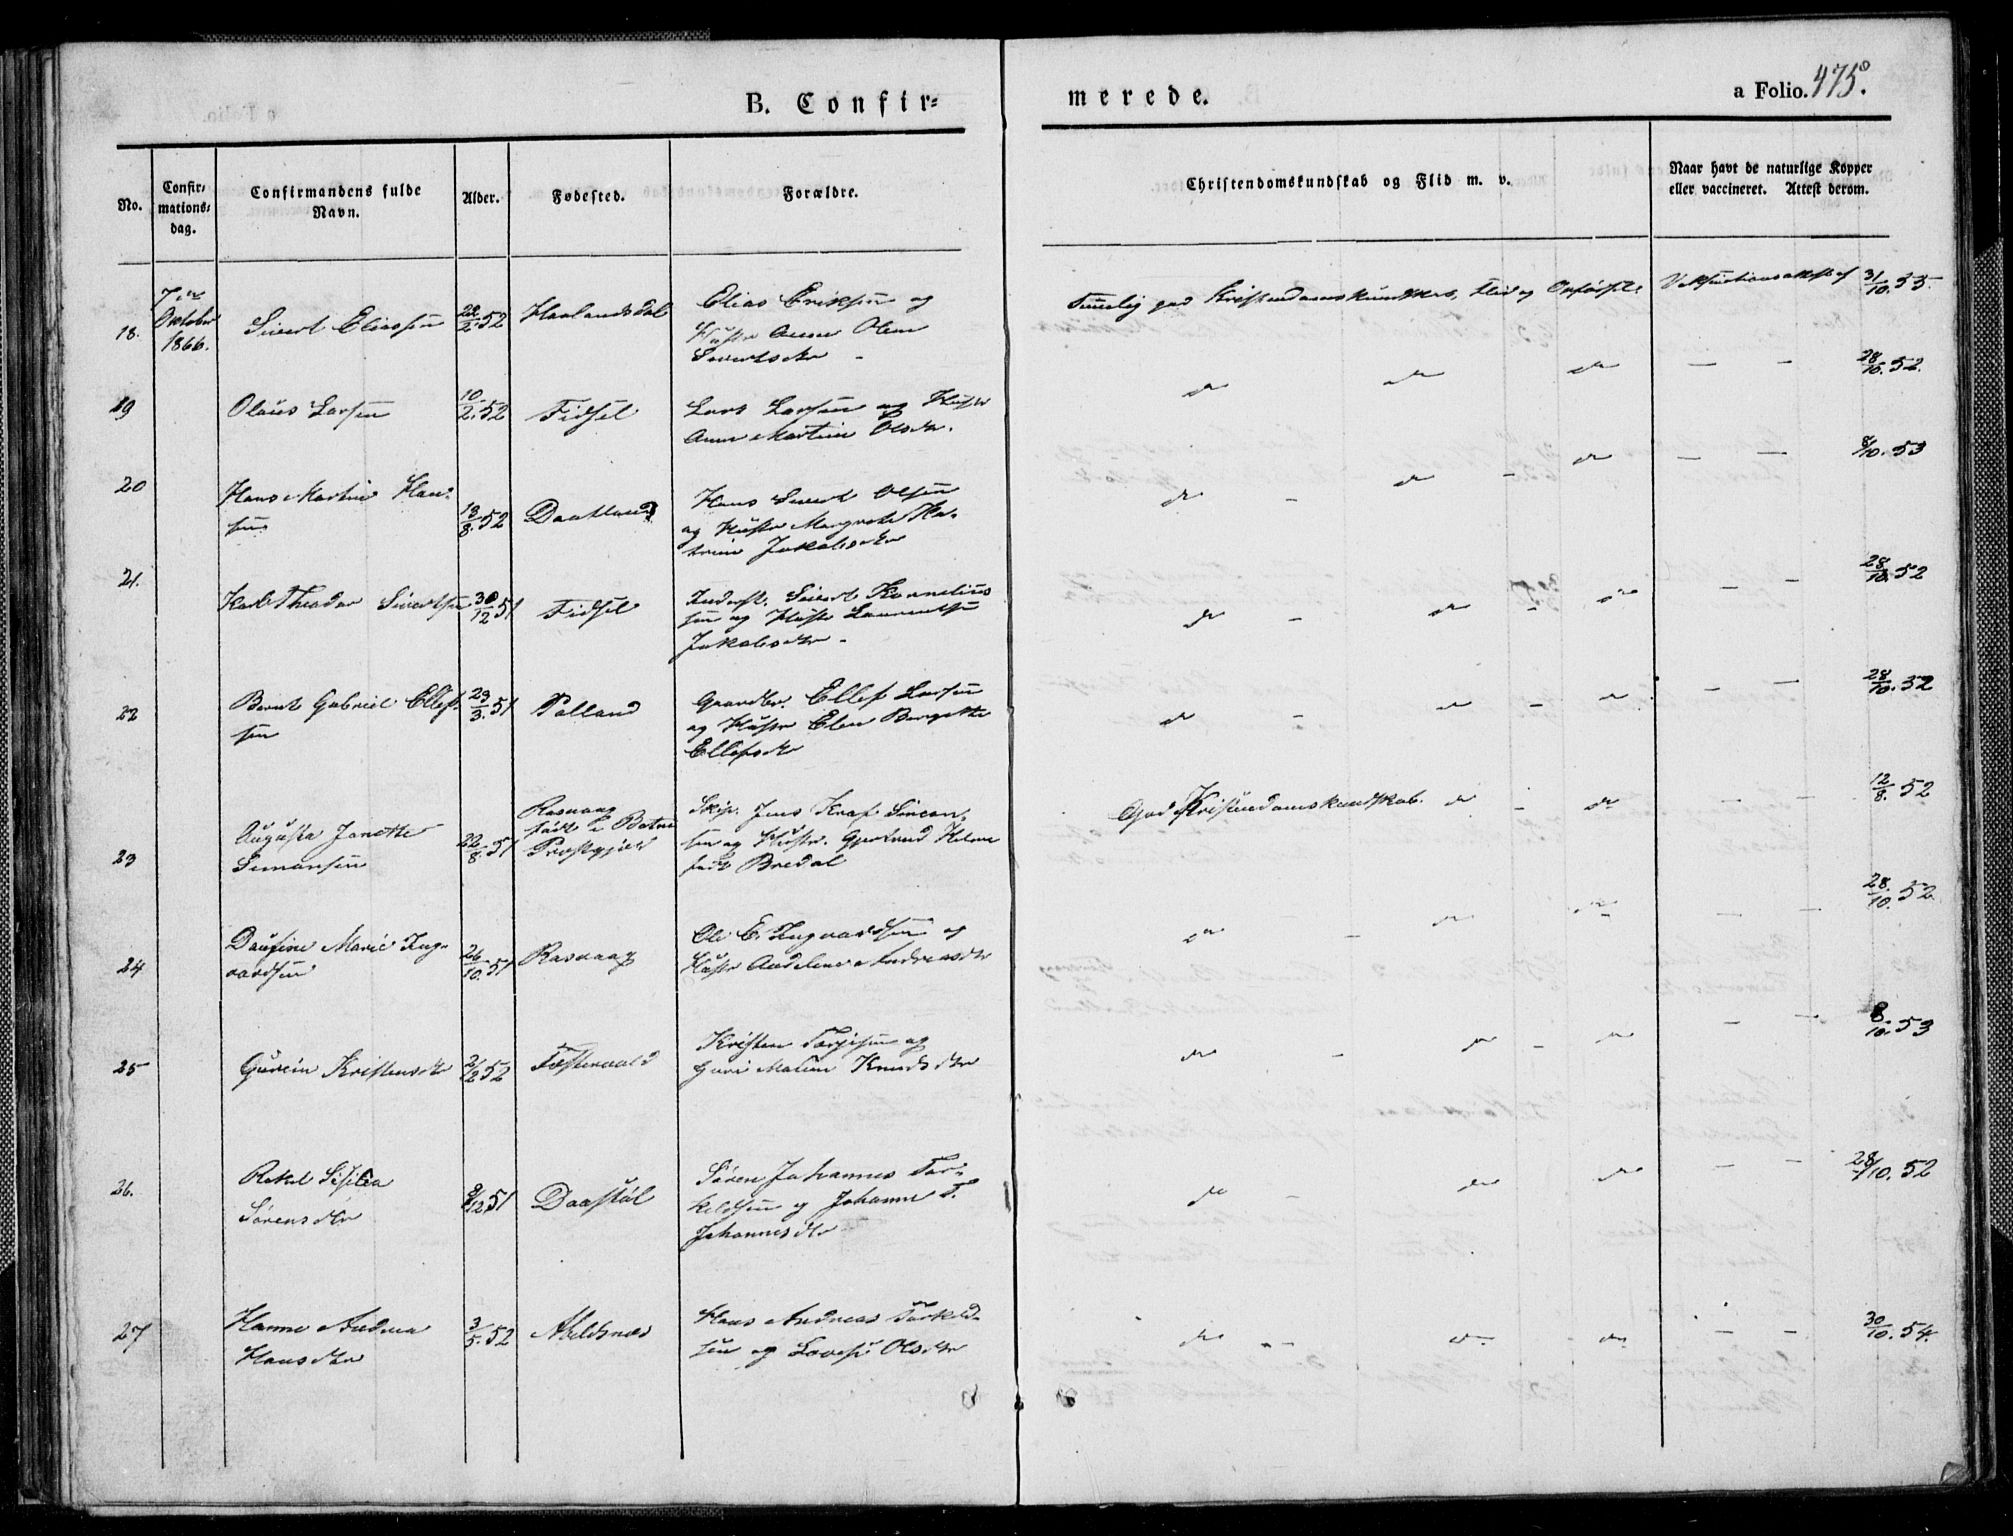 B. Confir=
merede.
a Folio. 475.
No.
Confir=
mations=
dag.
Confirmandens fulde
Navn.
Alder.
Fødested.
Forældre.
Christendomskundskab og Flid m. v.
Naar havt de naturlige Kopper
eller vaccineret. Attest derom.
18.
7de
Oktober
1866.
Sivert Eliassen
22/2. 52
Haalandsdal
Elias Eriksen og
Hustr Anne Olene
Sivertsdtr
Temmelig god Kristendomskundskab, Flid og Opførsel
Vaksinationsattest af 31/10. 55.
19
Olaus Larsen
10/2. 52
Fidsel
Lars Larsen og Hustr
Anne Martine Olsdtr.
do do do — — 28/10. 52.
20
Hans Martin Han-
sen
18/8. 52
Daatland
Hans Sivert Olsen
og Hustr Margrete Ka-
trine Jakobsdtr
do - do - do — — 8/10. 53
21.
Karl Theodor Sivertsen
30/12 51
Fidsel
Inderst. Sivert Kornelius
sen og Hustr
Jakobsdtr -
do - do - do — — 28/10. 52
22
Bernt Gabriel Ellef-
sen
29/3. 51
Polland
Gaardbr. Ellef Larsen
og Hustr Elen Bergitte
Ellefsdtr
do - do - do — — 28/10. 52
23
Augusta Janette
Simonsen
22/8. 51
Rasvaag
født i Batne
Præstegjeld
Skip. Jens Kraf Simon-
sen og Hustr. Gjertrud
født Bredal
God Kristendomskundskab. do - do
12/8. 52
24
Daufine Marie Ing-
vardsen
26/10. 51
Rasvaag
Ole E. Ingvardsen og
Hustr Andreasdtr
do — do do — — 28/10. 52
25
Gurine Kristensdtr
2/12 52
Kristen Torjesen og
Guri Malene Knudsdtr
do - do - do — — 8/10. 53
26.
Rakel Sisilia
Sørensdtr
9/12 51
Daastøl
Søren Johannes Tor-
kildsen og Johanne T.
Johannesdtr
do - do do — — 28/10. 52
27
Hanne Andrea
Hansdtr
3/5. 52
Abelsnes
Hans Andreas Torkild-
sen og Lovise Olsdtr
do - - do - do — — 30/10. 54.